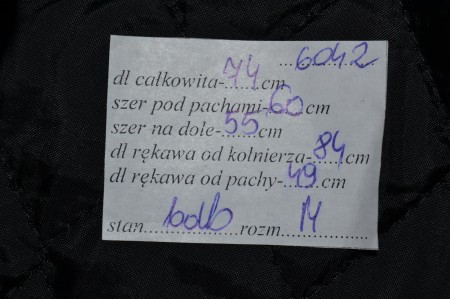 ...6042
dl całkowita-74cm
szer pod pachami-60cm
szer na dole-55cm
dl rękawa od kolnierza-84cm
dl rękawa od pachy-49cm
stan...bdb...rozm...M...